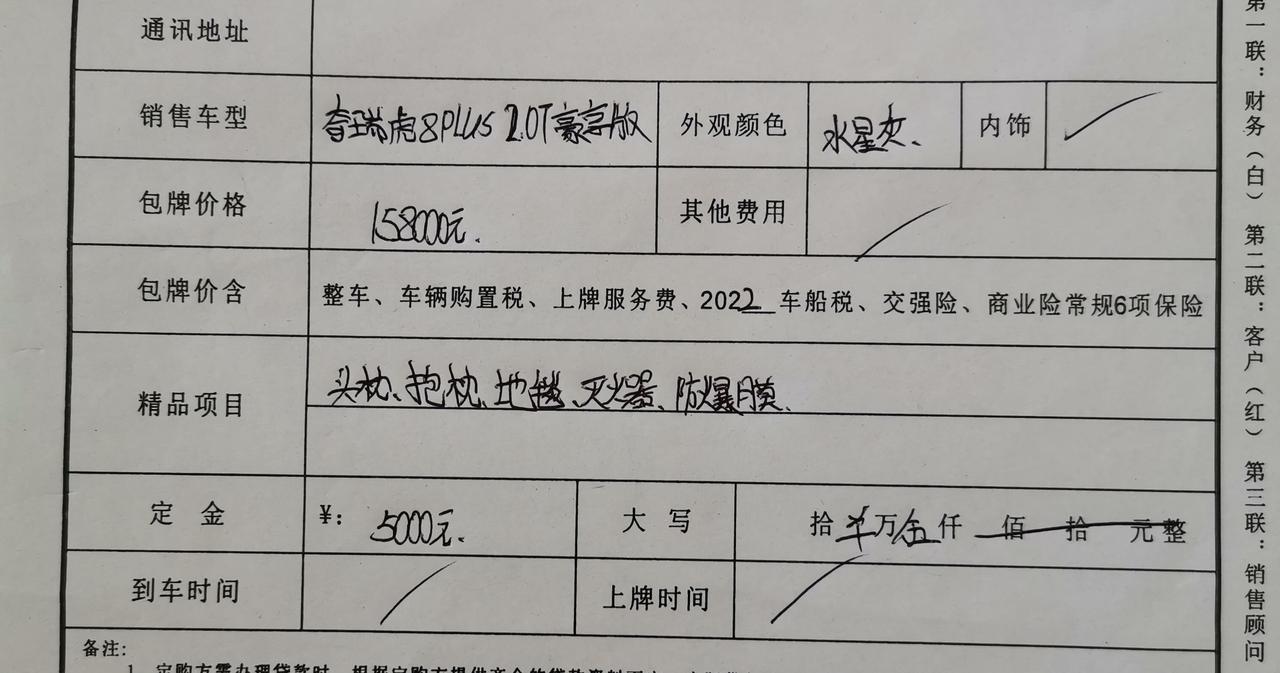 通讯地址
销售车型 奇瑞虎8PLUS 2.0T豪享版 外观颜色 水星灰. 内饰
包牌价格 158000元. 其他费用
包牌价含 整车、车辆购置税、上牌服务费、2022 车船税、交强险、商业险常规6项保险
精品项目 头枕、抱枕、地毯、灭火器、防爆膜.
定 金 ¥: 5000元. 大 写 拾 万伍仟 佰 拾 元整
到车时间 上牌时间
备注:
1. 定购方需办理贷款时,根据定购方提供
第一联:财务(白) 第二联:客户(红) 第三联:销售顾问